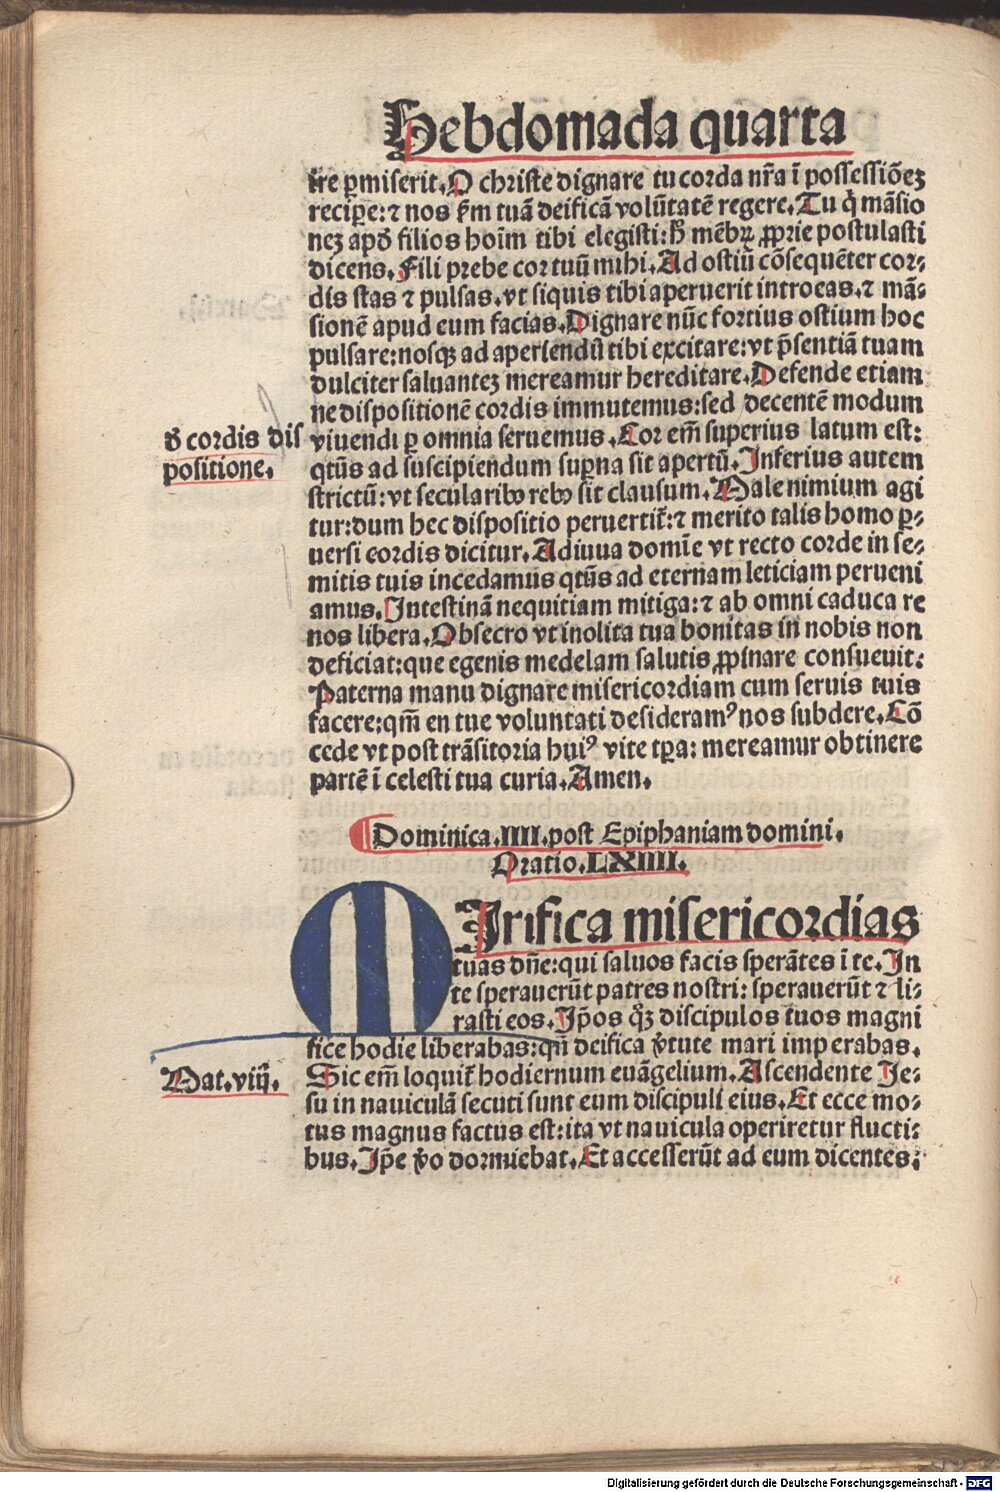 Hebdomada quarta
ire ꝑmiserit. O christe dignare tu corda nr̃a ī possessiōeꝫ
recipe: ⁊ nos ẜm tuā deificā volūtatē regere. Tu q̇ māsio
neꝫ apd̕ filios hoīm tibi elegisti: h̕ mēbꝝ ꝓprie postulasti
dicens. Fili prebe cor tuū mihi. Ad ostiū cōsequēter cor⸗
dis stas ⁊ pulsas. vt siquis tibi aperuerit introeas. ⁊ mā⸗
sionē apud eum facias. Dignare nūc fortius ostium hoc
pulsare: nosqꝫ ad aperiendū tibi excitare: vt p̄sentiā tuam
dulciter saluanteꝫ mereamur hereditare. Defende etiam
ne dispositionē cordis immutemus: sed decentē modum
ꝺ̕ cordis dis
positione.
viuendi ꝑ omnia seruemus. Cor em̄ superius latum est:
qtūs ad suscipiendum suꝑna sit apertū. Inferius autem
strictū: vt secularibꝰ rebꝰ sit clausum. Male nimium agi
tur: dum hec dispositio peruertit᷑: ⁊ merito talis homo ꝑ⸗
uersi cordis dicitur. Adiuua domīe vt recto corde in se⸗
mitis tuis incedamus qtūs ad eternam leticiam perueni
amus. Intestinā nequitiam mitiga: ⁊ ab omni caduca re
nos libera. Obsecro vt inolita tua bonitas in nobis non
deficiat: que egenis medelam salutis ꝓpinare consueuit:
Paterna manu dignare misericordiam cum seruis tuis
facere: qm̄ en tue voluntati desideramꝰ nos subdere. Cō
cede vt post trāsitoria huiꝰ vite tꝑa: mereamur obtinere
partē ī celesti tua curia. Amen.
Dominica. IIII. post Epiphaniam domini.
Oratio. LXIIII.
MIrifica misericordias
tuas dn̄e: qui saluos facis sperātes ī te. In
te sperauerūt patres nostri: sperauerūt ⁊ li⸗
rasti eos. Ip̄os qꝫ discipulos tuos magni
fice hodie liberabas: qn̄ deifica v̕tute mari imperabas.
Mat. viij.
Sic em̄ loquit᷑ hodiernum euāgelium. Ascendente Ie⸗
su in nauiculā secuti sunt eum discipuli eius. Et ecce mo⸗
tus magnus factus est: ita vt nauicula operiretur flucti⸗
bus. Ip̄e v̕o dormiebat. Et accesserūt ad eum dicentes:
Digitalisierung gefördert durch die Deutsche Forschungsgemeinschaft - DFG